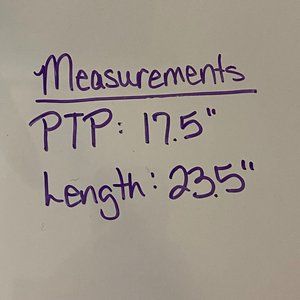 Measurements
PTP: 17.5"
Length: 23.5"